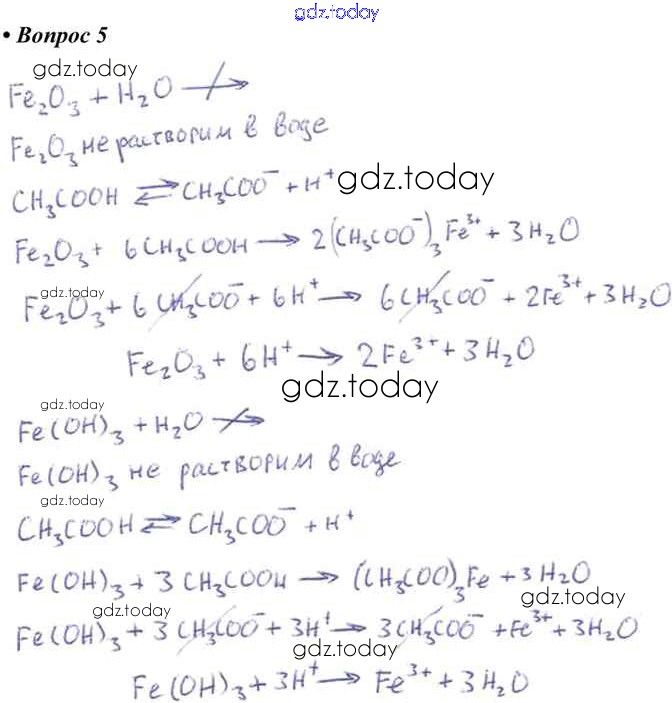 gdz.today
• Вопрос 5
gdz.today
Fe₂O₃ + H₂O ↛
Fe₂O₃ не растворим в воде
CH₃COOH ⇄ CH₃COO⁻ + H⁺ gdz.today
Fe₂O₃ + 6CH₃COOH → 2(CH₃COO⁻)₃Fe³⁺ + 3H₂O
gdz.today
Fe₂O₃ + 6CH₃COO⁻ + 6H⁺ → 6CH₃COO⁻ + 2Fe³⁺ + 3H₂O
Fe₂O₃ + 6H⁺ → 2Fe³⁺ + 3H₂O
gdz.today
gdz.today
Fe(OH)₃ + H₂O ↛
Fe(OH)₃ не растворим в воде
gdz.today
CH₃COOH ⇄ CH₃COO⁻ + H⁺
Fe(OH)₃ + 3CH₃COOH → (CH₃COO)₃Fe + 3H₂O
gdz.today
gdz.today
Fe(OH)₃ + 3CH₃COO⁻ + 3H⁺ → 3CH₃COO⁻ + Fe³⁺ + 3H₂O
gdz.today
Fe(OH)₃ + 3H⁺ → Fe³⁺ + 3H₂O